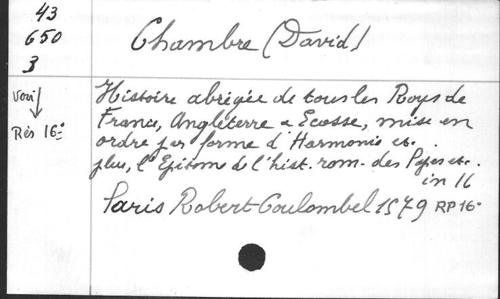 43
650
3
Chambre (David)
voir
Rés 16°
Histoire abrégée de tous les Roys de
France, Angleterre & Ecosse, mise en
ordre par forme d'Harmonie etc.
plus, l'Epitome de l'hist. rom. des Papes etc.
in 16
Paris Robert Coulombel 1579 RP 16°